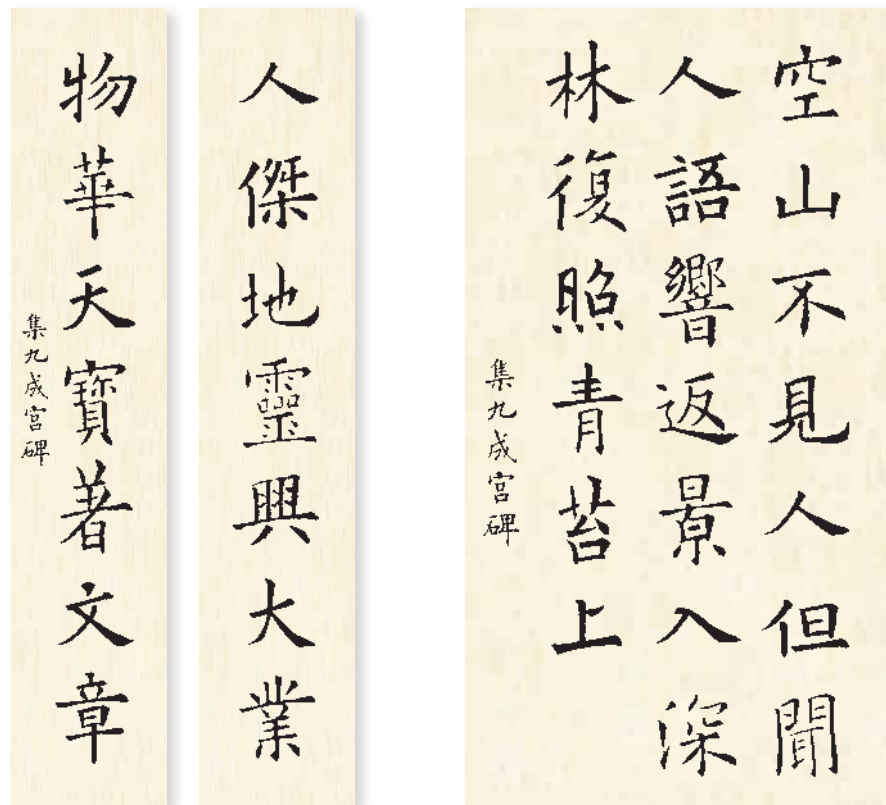 空山不見人但聞
人語響返景入深
林復照青苔上
集九成宮碑
人傑地靈興大業
物華天寶著文章
集九成宮碑